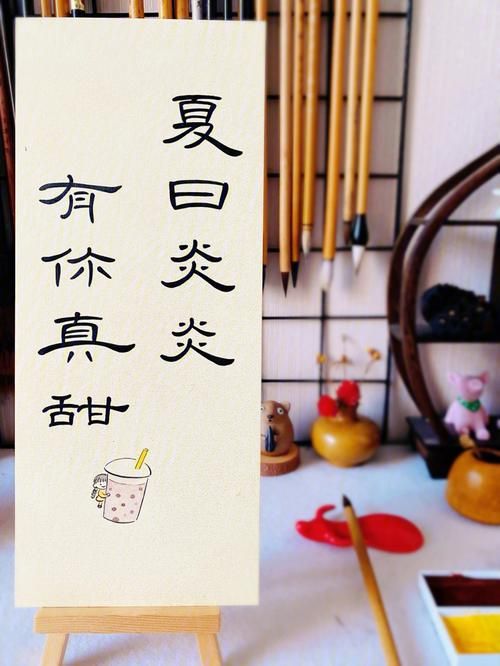 夏日炎炎
有你真甜